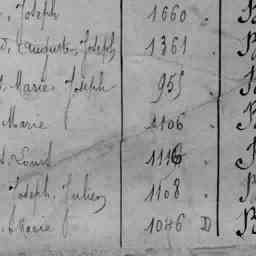 , Joseph 1660 .
Auguste, Joseph 1361 .
, Marie, Joseph 955 .
Marie 1106 .
, Louis 1116 .
Joseph, Julien 1108 .
, Marie 1046 D